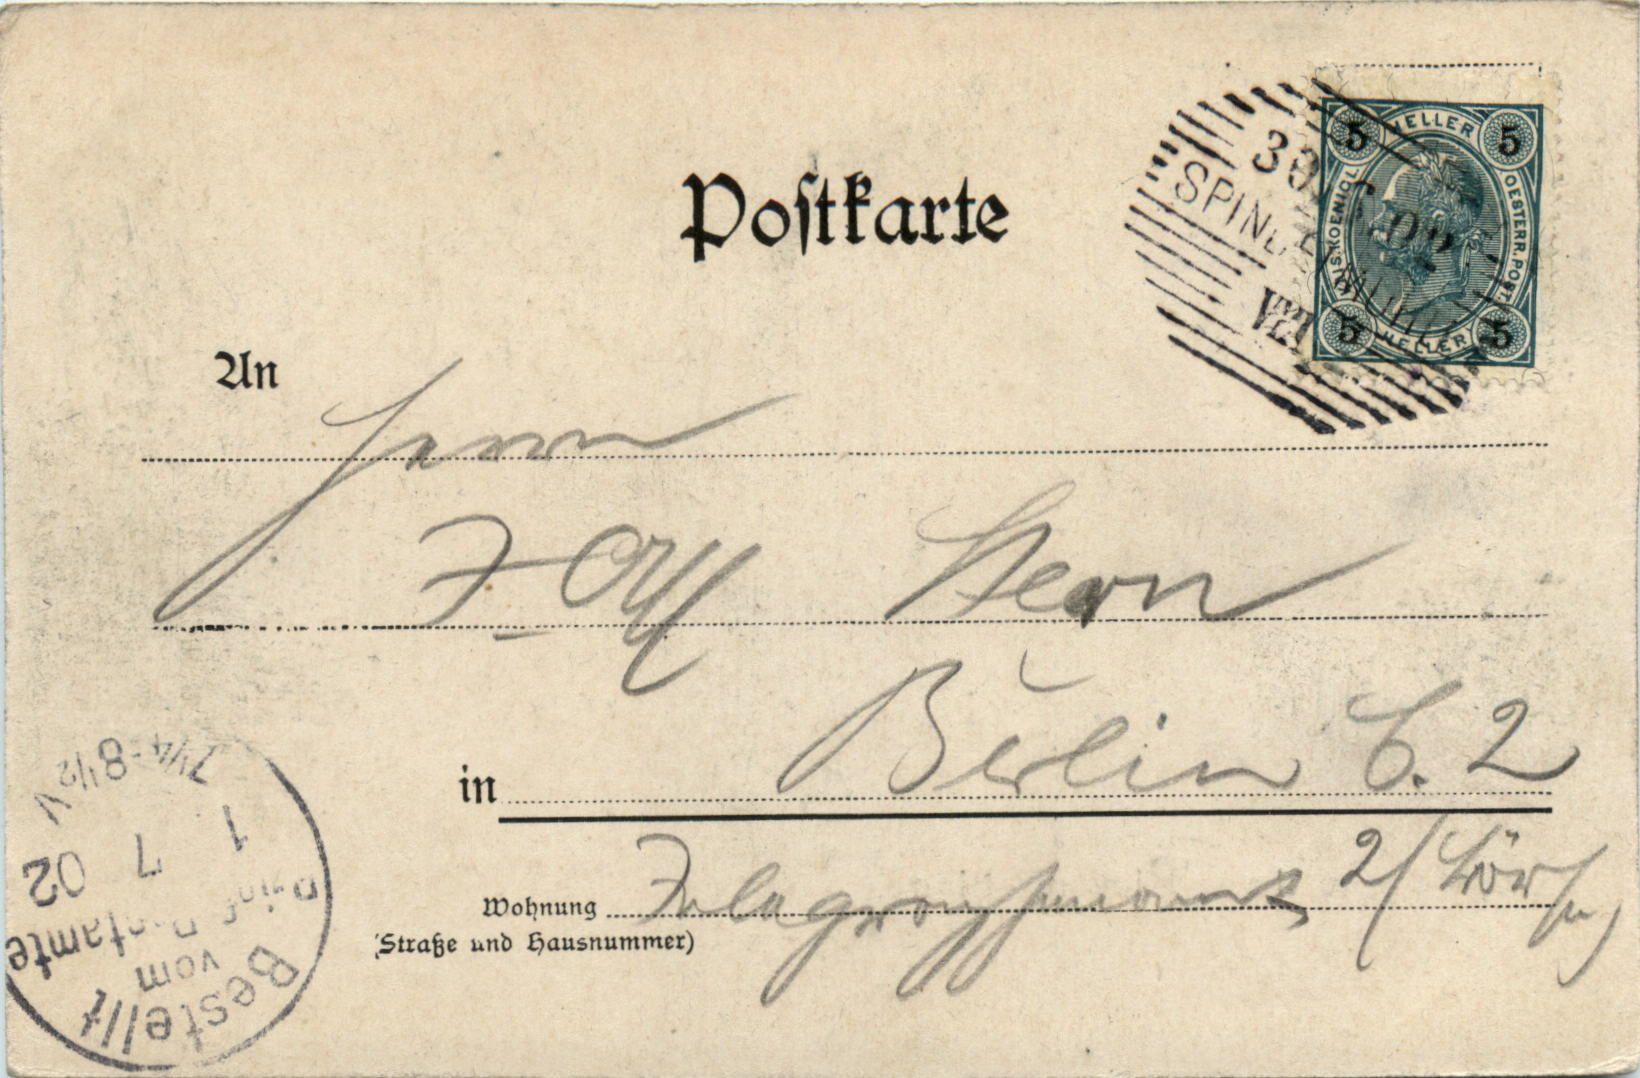 Postkarte
30 6 02
SPINDELMÜHLE
5 HELLER 5
KAIS. KOENIGL. OESTERR. POST.
5 HELLER 5
An
Herrn
Stern
in Berlin C. 2
Wohnung Telegraphenamt 2/ Börse
(Straße und Hausnummer)
Bestellt
vom
Postamte
1 7 02
7¼-8½V